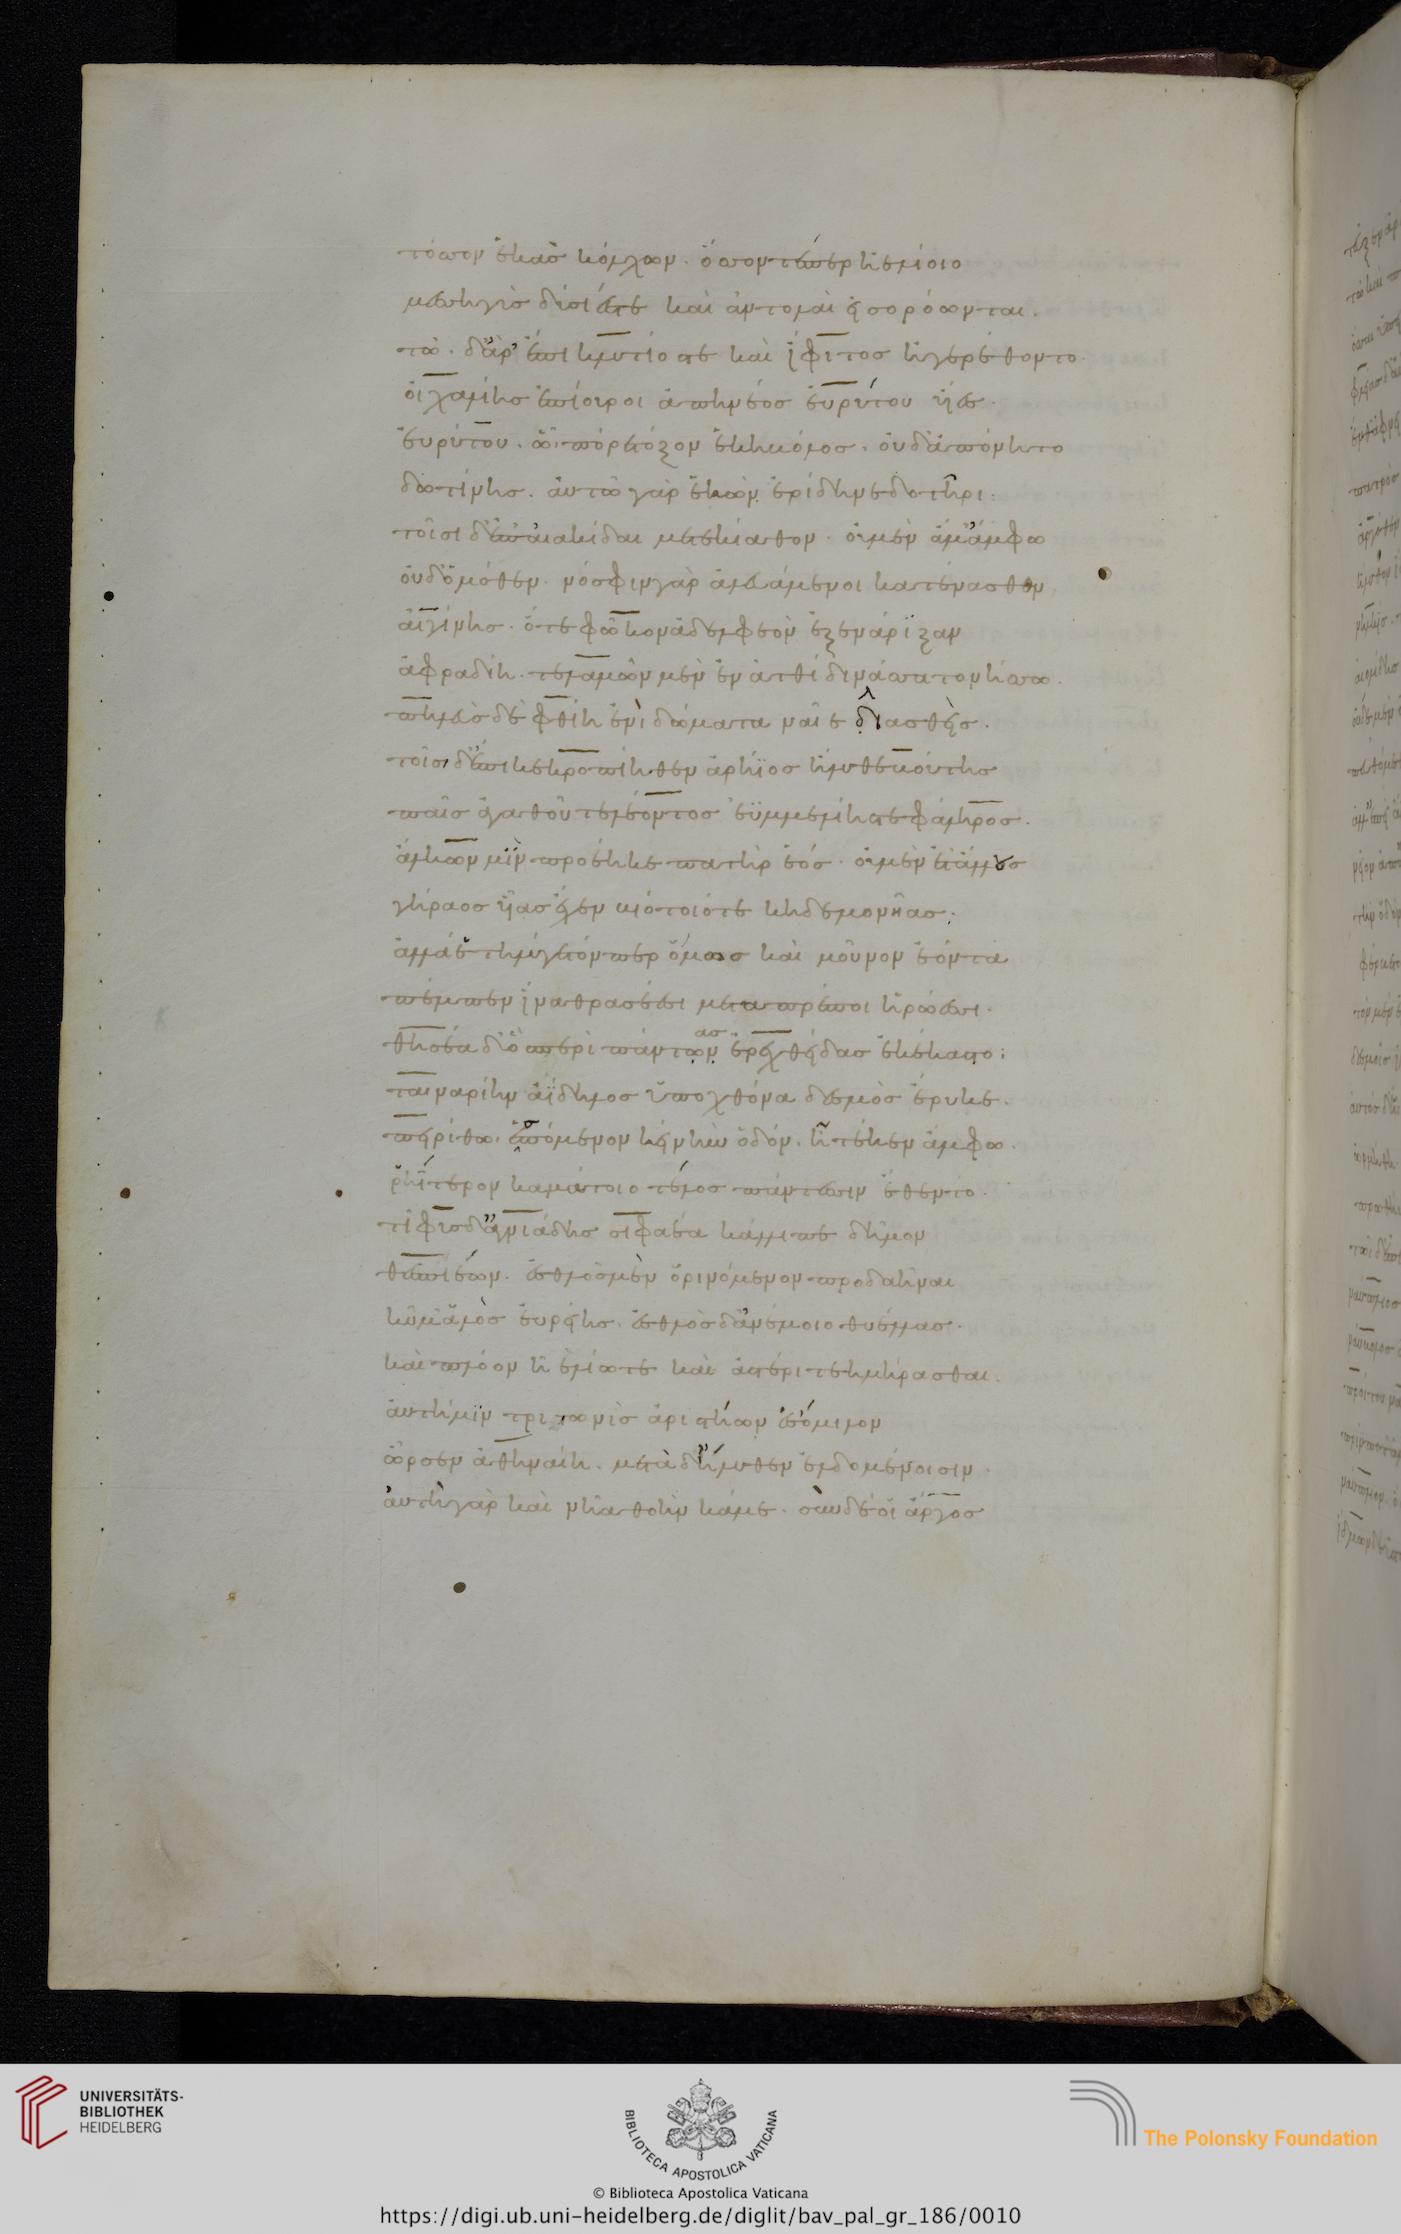 τόσον ἑκὰσ κόλχων. ὅσον τέπερ ἠελίοιο
μεσηγὺσ δύσιέστε καὶ ἀντολαὶ εἰσορόωνται.
τῶ. δἄρ' ἔπι κλυτίοστε καὶ ἴφιτοσ ἠγερέθοντο.
οἰχαλίησ ἐπίουροι ἀπηνέοσ εὐρύτου υἷεσ.
εὐρύτου. ὧι πόρε τόξον ἑκηκόλοσ. οὐδἀπόνητο
δωτίνησ. αὐτῶ γὰρ ἑκὼν ἐρίδηνε δοτῆρι.
τοῖσι δἐπ' αἰακίδαι μετεκίαθον. οὐμὲν ἅμἄμφω
οὐδὁμόθεν. νόσφιν γὰρ ἀλευάμενοι κατένασθεν
αἰγίνησ. ὅτε φῶκον ἀδελφεὸν ἐξενάριξαν
ἀφραδίη. τελαμὼν μὲν ἐν ἀτθίδι νάσσατο νήσω.
πηλεὺσ δὲ φθίη ἐνὶ δώματα ναῖε λιασθείσ.
τοῖσ δἔπι κεκροπίηθεν ἀρήϊοσ ἤλυθε βούτησ
παῖσ ἀγαθοῦ τελέοντοσ ἐϋμμελίησ τε φάληροσ.
ἄλκων μὶν προέηκε πατὴρ ἑόσ. οὐμὲν ἔτἄλλουσ
γήραοσ υἷασ ἔχεν βιότοιό τε κηδεμονῆασ.
ἀλλά ἑ τηλύγετόν περ ὅμωσ καὶ μοῦνον ἐόντα
πέμπεν ἵνα θρασέεσσι μεταπρέποι ἡρώεσσι.
θησέα δὃσ περὶ πάντων ασ ἐρεχθείδασ ἐκέκαστο.
ταιναρίην ἀΐδηλοσ ὑπὸ χθόνα δεσμὸσ ἔρυκε.
πειρίθω. ἑσπόμενον κείνην ὁδόν. ἦ τέ κεν ἄμφω.
ῥηΐτερον καμάτοιο τέλοσ πάντεσσιν ἔθεντο.
τῖφυσ δἁγνιάδησ σιφαέα κάλλιπε δῆμον
θεσπιέων. ἐσθλὸσ μὲν ὀρινόμενον προδαῆναι
κῦμ' ἁλὸσ εὐρείησ. ἐσθλὸσ δἀνέμοιο θυέλλασ.
καὶ πλόον ἠελίωτε καὶ ἀστέρι τεκμήρασθαι.
αὐτήμιν τριτωνὶσ ἀριστήων ἐσόμιλον
ὦρσεν ἀθηναίη. μετὰ δἤλυθεν ἐλδομένοισιν.
αὐτὴ γὰρ καὶ νῆα θοὴν κάμε. σὺν δέ οἱ ἄργοσ
UNIVERSITÄTS-
BIBLIOTHEK
HEIDELBERG
BIBLIOTECA APOSTOLICA VATICANA
© Biblioteca Apostolica Vaticana
The Polonsky Foundation
https://digi.ub.uni-heidelberg.de/diglit/bav_pal_gr_186/0010